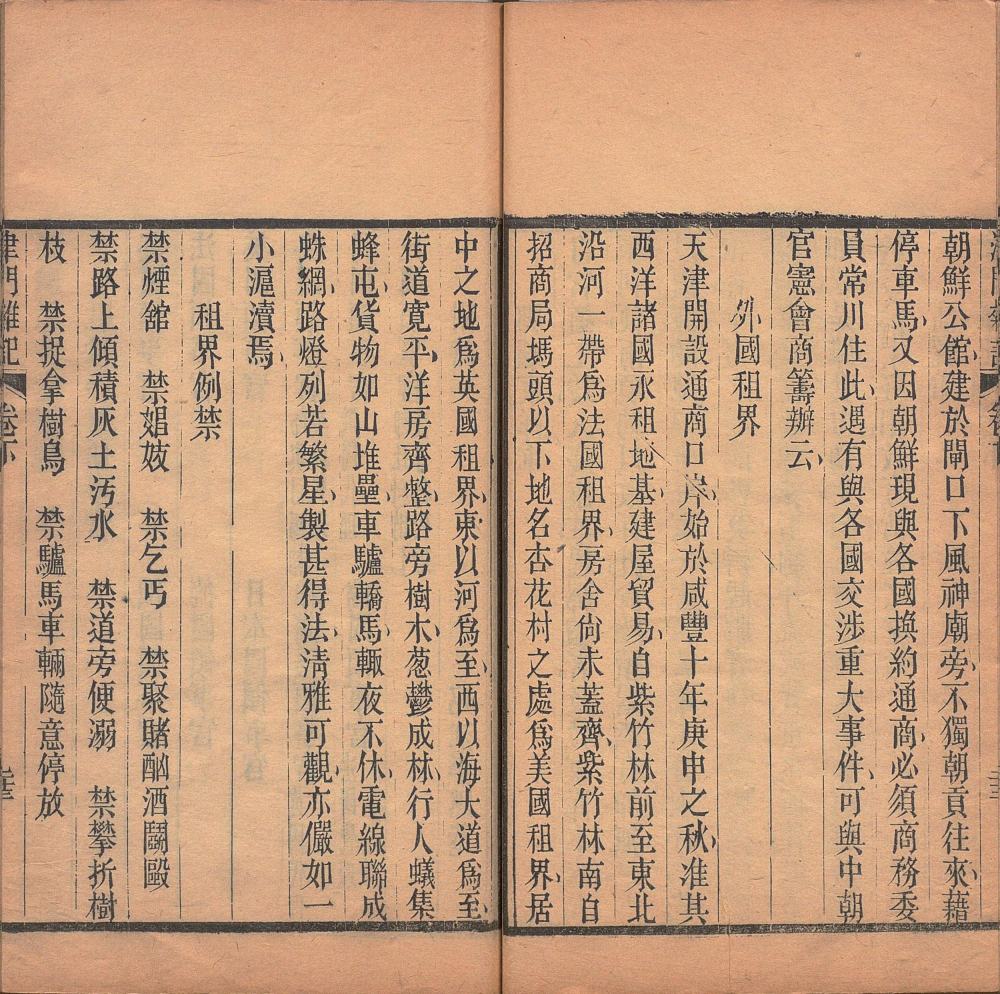 朝鮮公館建於閘口下風神廟旁不獨朝貢往來藉
停車馬又因朝鮮現與各國換約通商必須商務委
員常川住此遇有與各國交涉重大事件可與中朝
官憲會商籌辦云
外國租界
天津開設通商口岸始於咸豐十年庚申之秋准其
西洋諸國永租地基建屋貿易自紫竹林前至東北
沿河一帶爲法國租界房舍尙未蓋齊紫竹林南自
招商局馬頭以下地名杏花村之處爲美國租界居
中之地爲英國租界東以河爲至西以海大道爲至
街道寬平洋房齊整路旁樹木葱鬱成林行人蟻集
蜂屯貨物如山堆壘車驢轎馬輙夜不休電線聯成
蛛網路燈列若繁星製甚得法淸雅可觀亦儼如一
小滬瀆焉
租界例禁
禁煙舘　禁娼妓　禁乞丐　禁聚賭酗酒鬬毆
禁路上傾積灰土汚水　禁道旁便溺　禁攀折樹
枝　禁捉拿樹鳥　禁驢馬車輛隨意停放
津門雜記
卷下